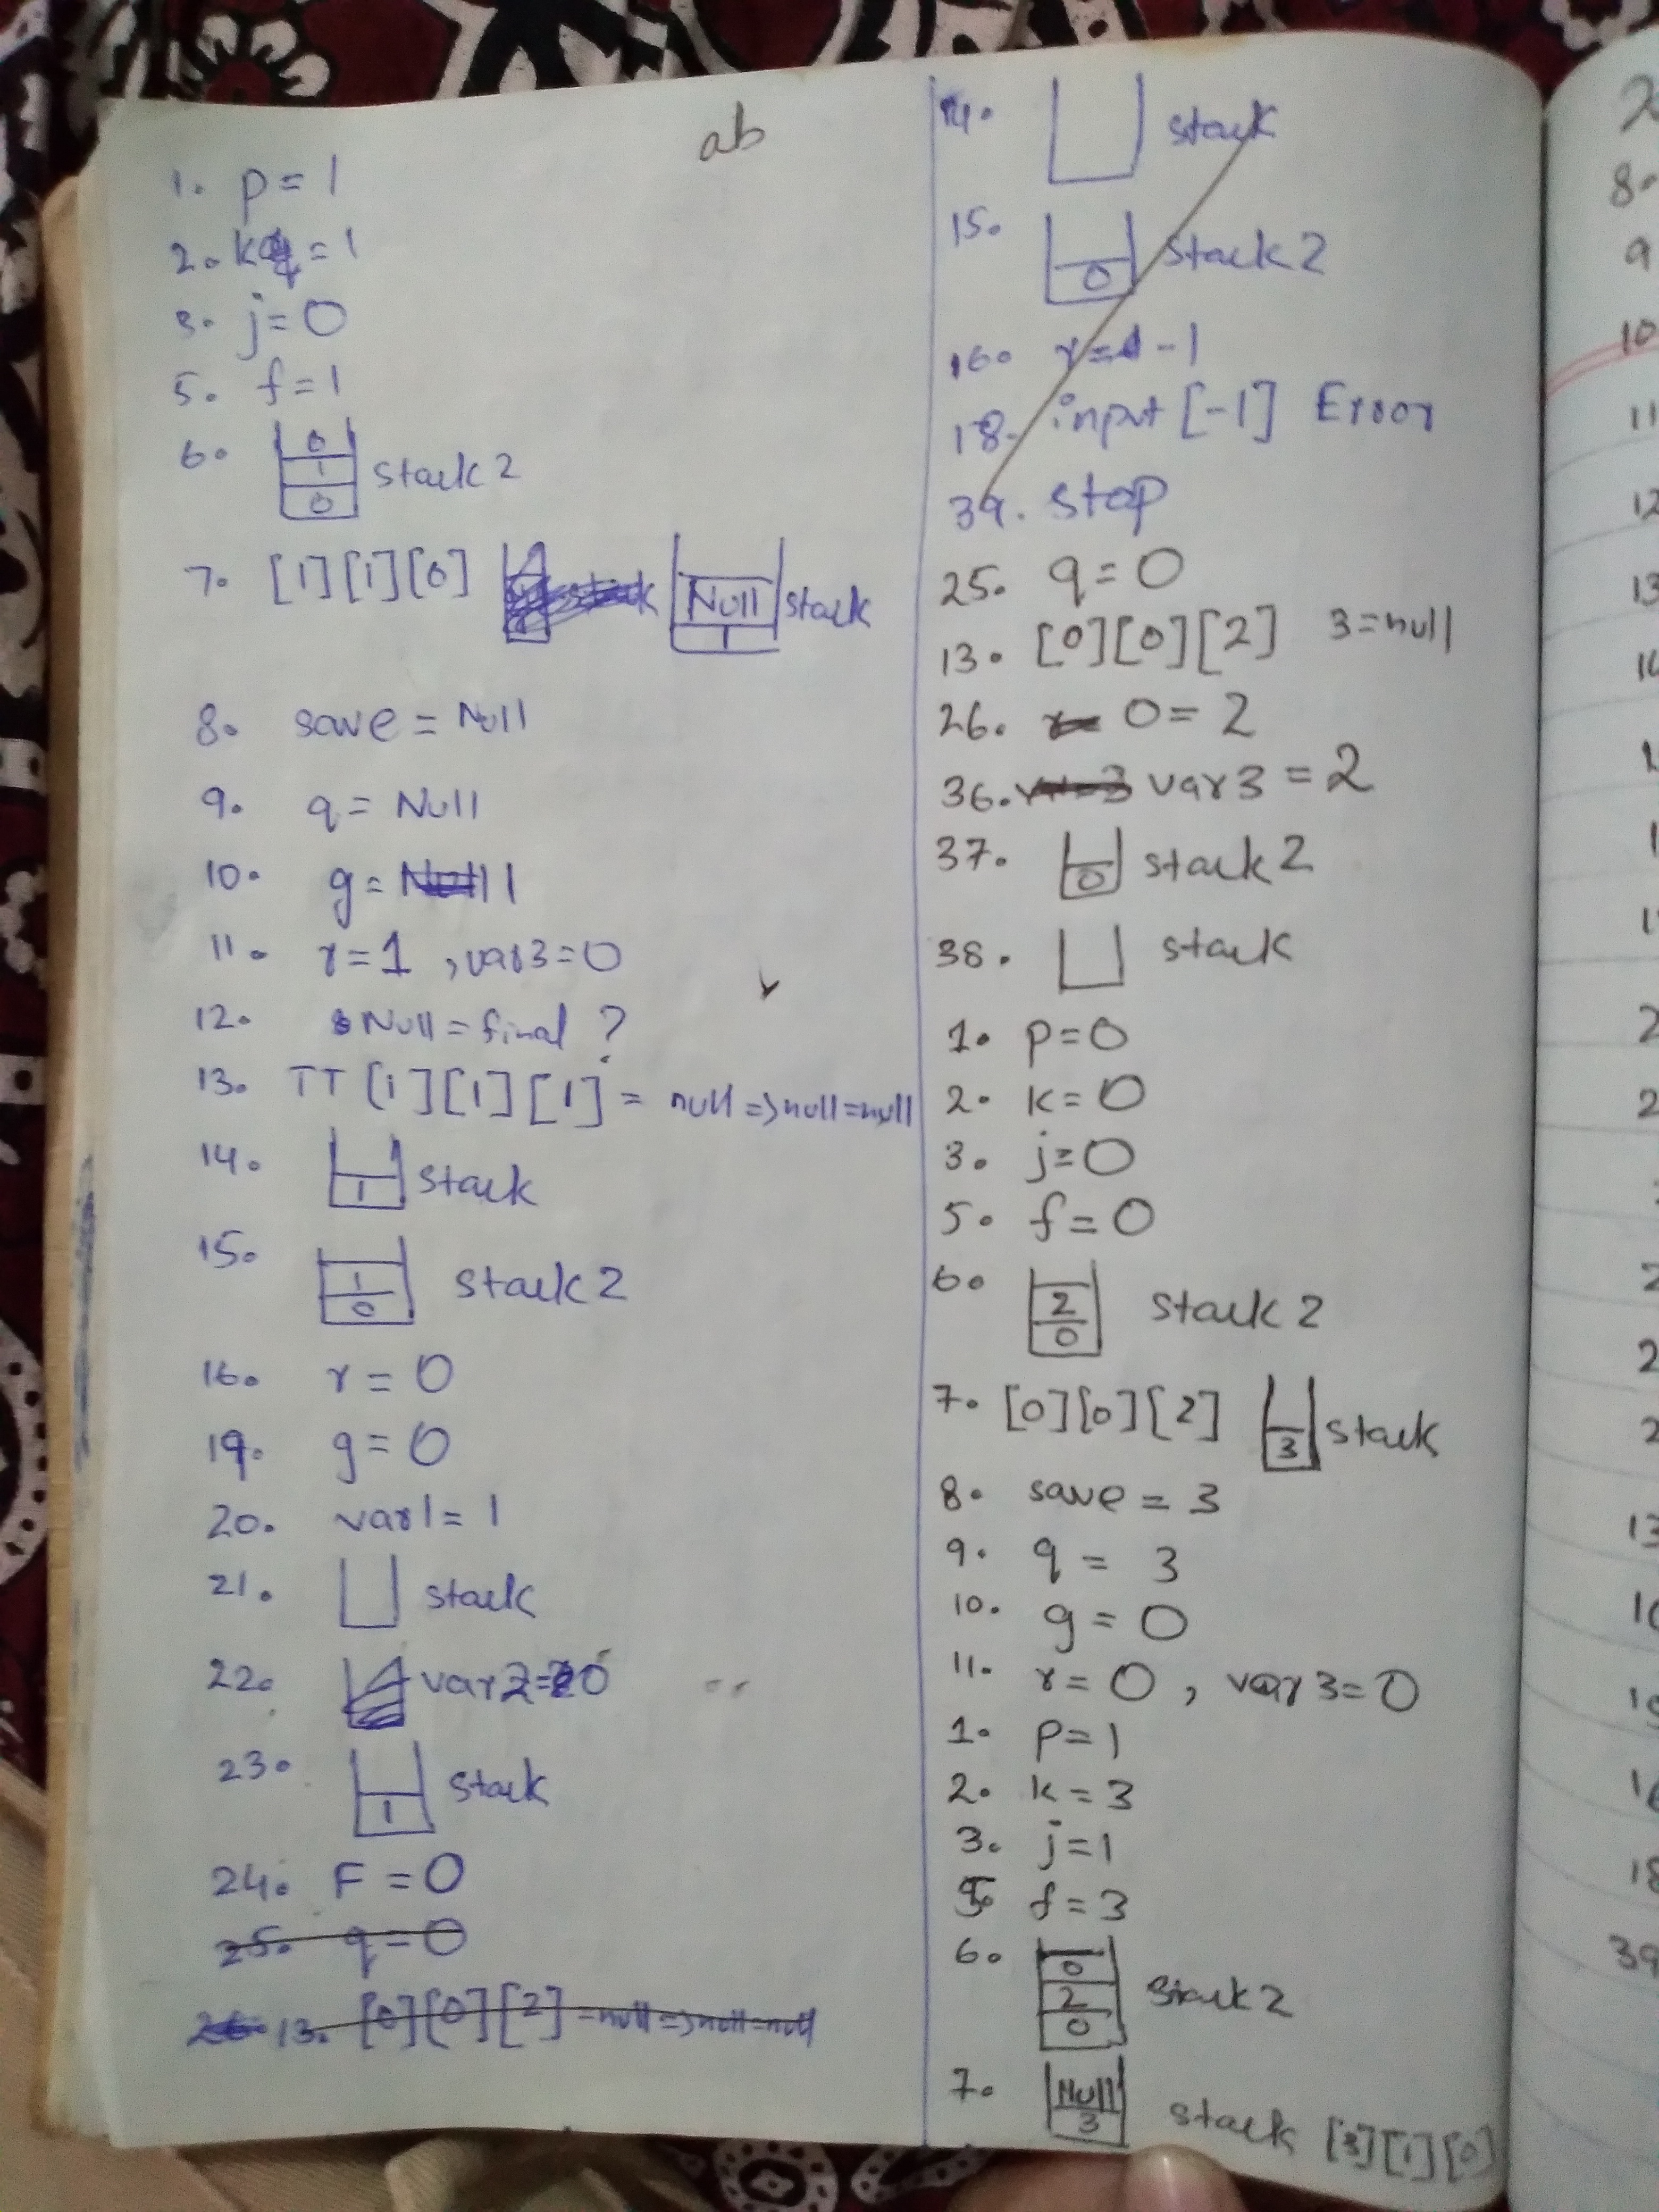 ab
1. p = 1
2. k = 1
3. j = 0
5. f = 1
6. 0 1 0 stack 2
7. [1][1][0] Null 1 stack
8. save = Null
9. q = Null
10. g = 1
11. r = 1 , var3 = 0
12. Null = final ?
13. TT [1][1][1] = null => null = null
14. 1 stack
15. 1 0 stack 2
16. r = 0
19. g = 0
20. var1 = 1
21. stack
22. var2 = 0
23. 1 stack
24. F = 0
25. q = 0
13. [0][0][2] = null => null = null
14. stack
15. 0 stack 2
16. r = -1
18. input [-1] Error
39. stop
25. q = 0
13. [0][0][2] 3 = null
26. 0 = 2
36. var3 = 2
37. 0 stack 2
38. stack
1. p = 0
2. k = 0
3. j = 0
5. f = 0
6. 2 0 stack 2
7. [0][0][2] 3 stack
8. save = 3
9. q = 3
10. g = 0
11. r = 0 , var3 = 0
1. p = 1
2. k = 3
3. j = 1
5. f = 3
6. 0 2 0 stack 2
7. Null 3 stack [3][1][0]
8.
9
10
11
12
13